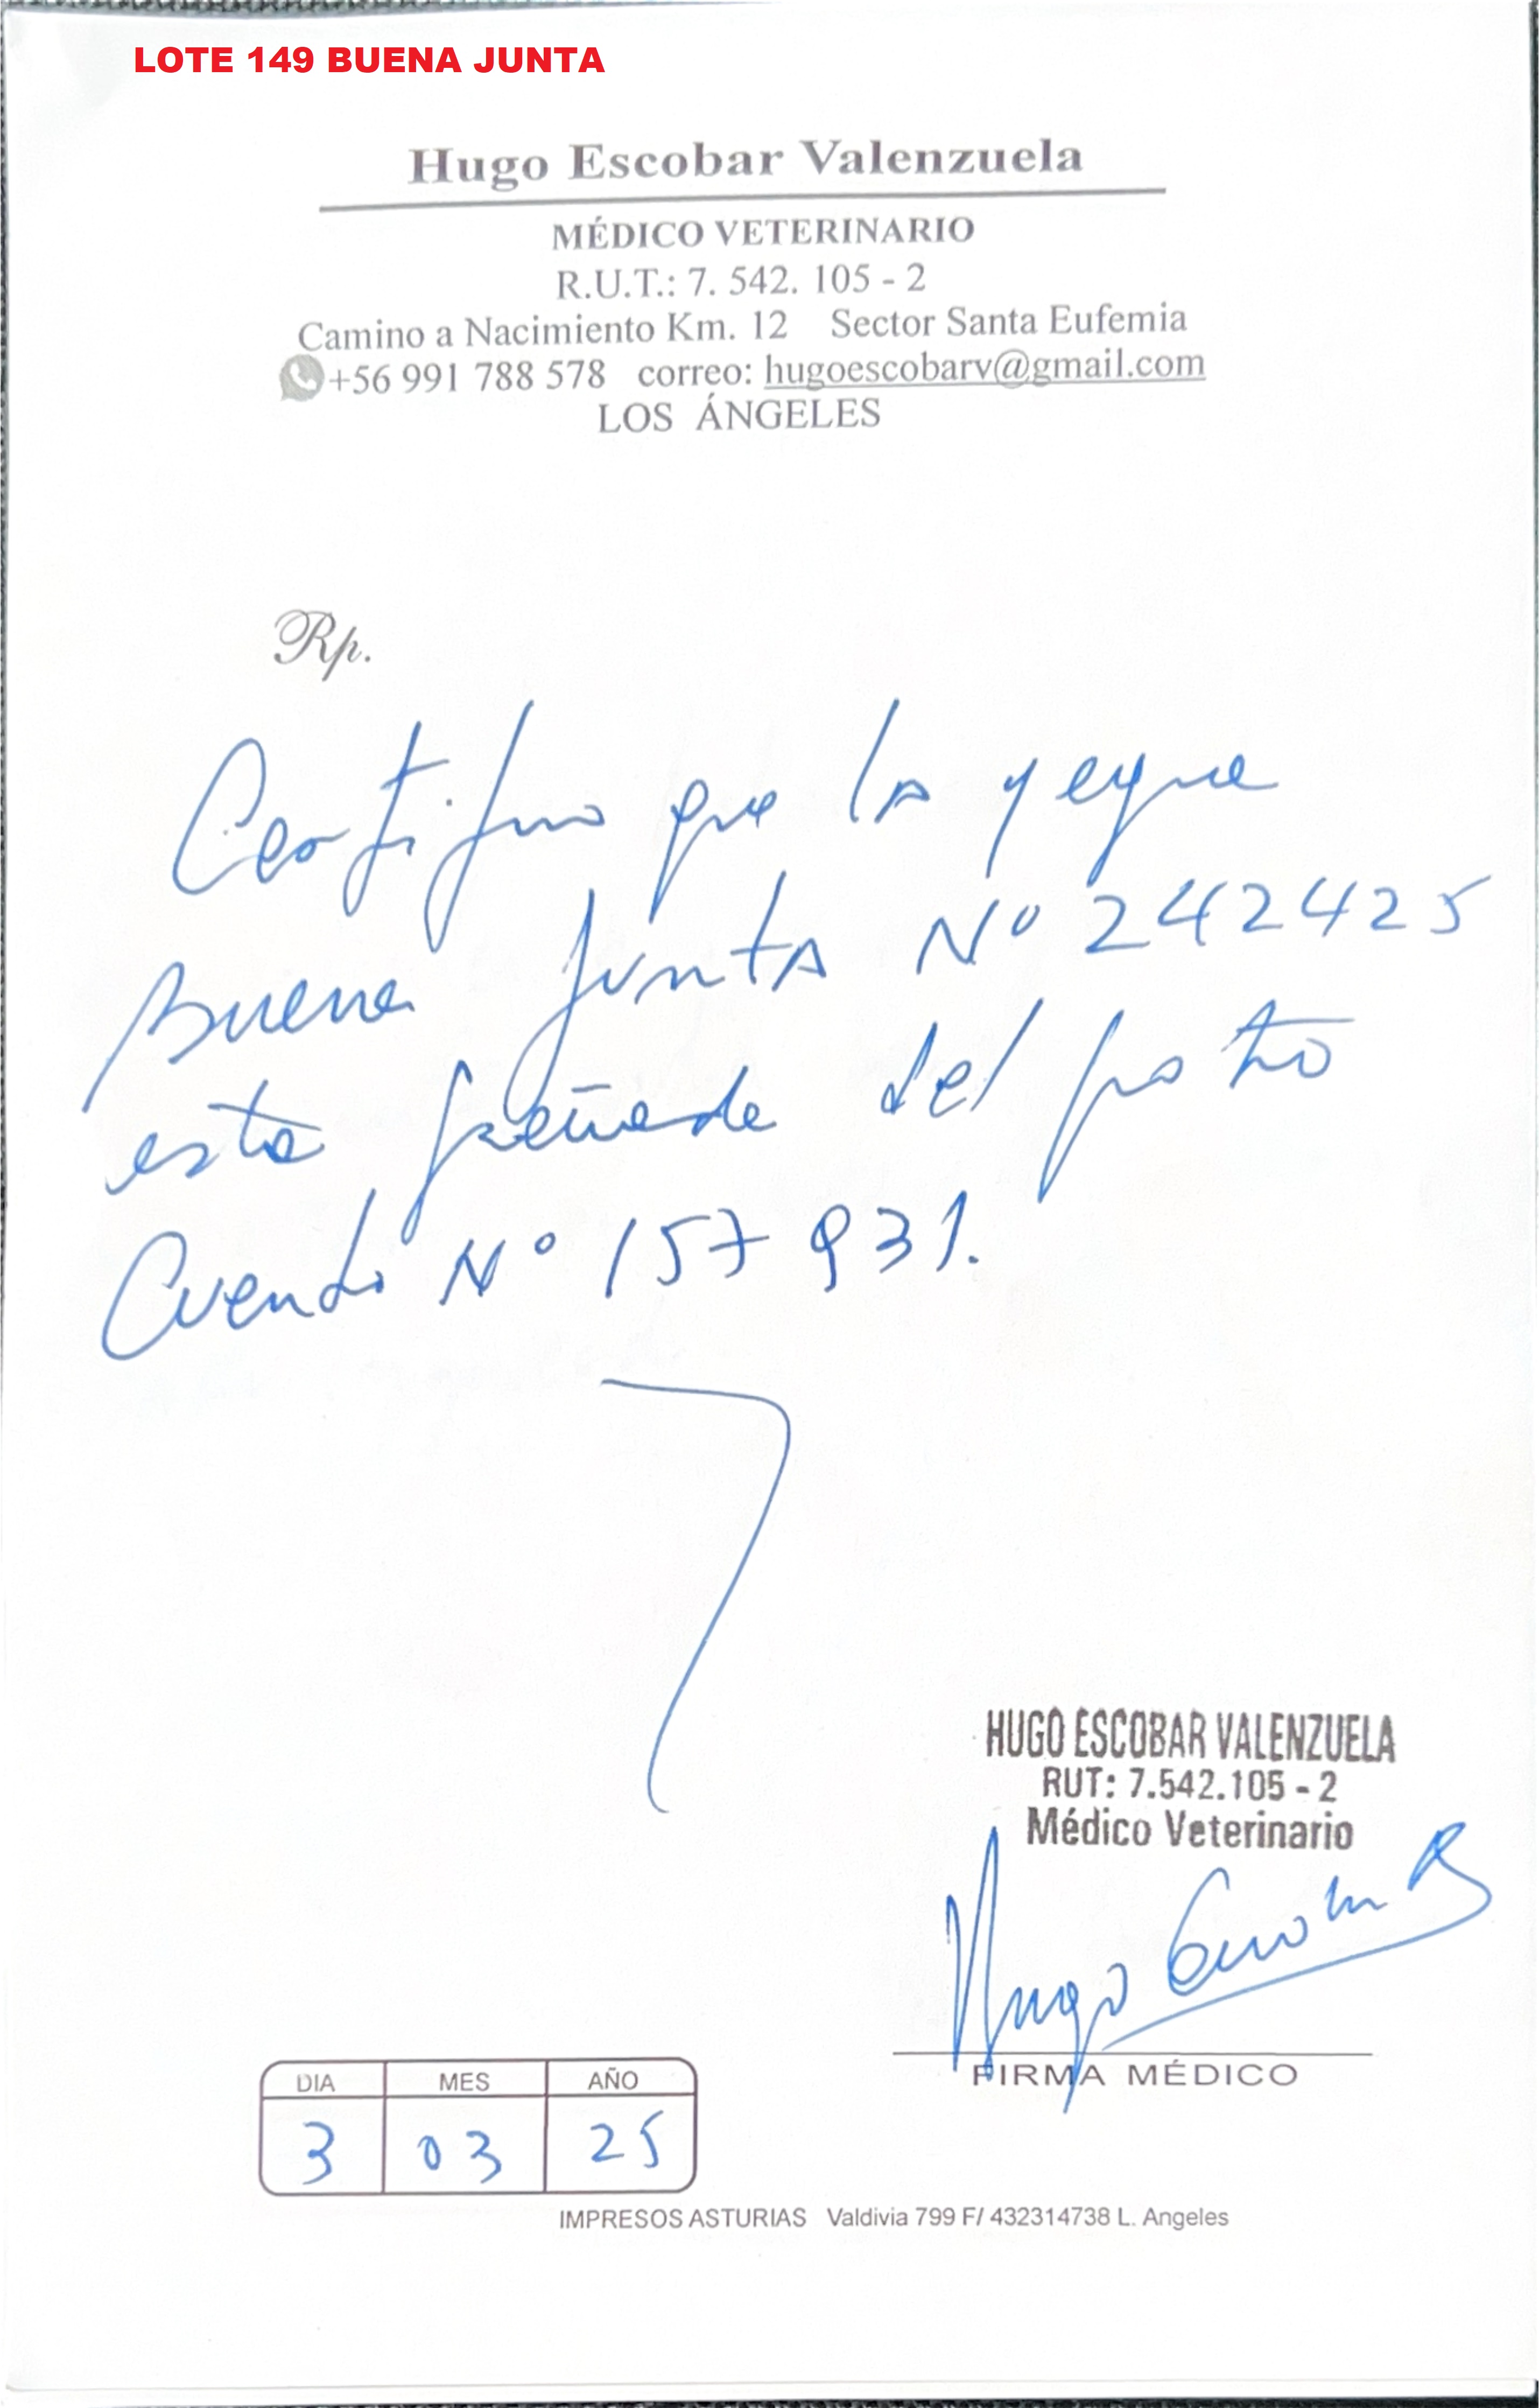 LOTE 149 BUENA JUNTA
Hugo Escobar Valenzuela
MÉDICO VETERINARIO
R.U.T.: 7. 542. 105 - 2
Camino a Nacimiento Km. 12 Sector Santa Eufemia
+56 991 788 578 correo: hugoescobarv@gmail.com
LOS ÁNGELES
Rp.
Certifico que la yegua
Buena Junta Nº 242425
esta preñada del potro
Cuando Nº 157931.
HUGO ESCOBAR VALENZUELA
RUT: 7.542.105 - 2
Médico Veterinario
FIRMA MÉDICO
DIA MES AÑO
3 03 25
IMPRESOS ASTURIAS Valdivia 799 F/ 432314738 L. Angeles